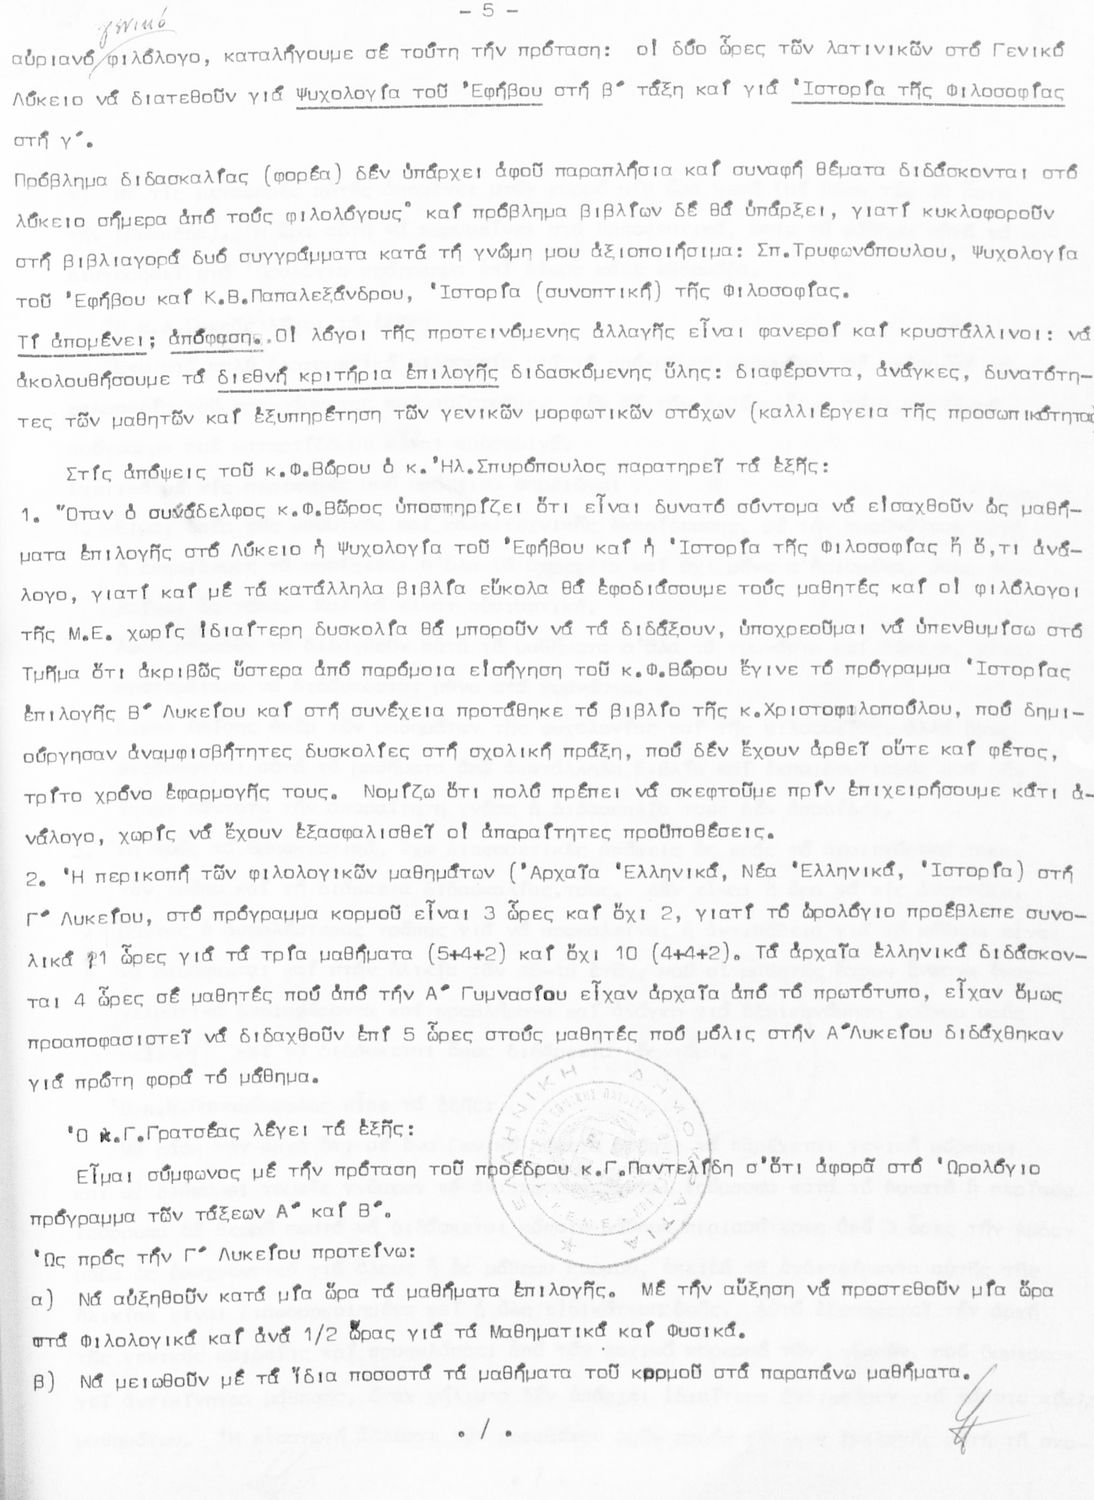 - 5 -
γενικό
αὐριανό φιλόλογο, καταλήγουμε σέ τούτη τήν πρόταση: οἱ δύο ὧρες τῶν λατινικῶν στό Γενικό
Λύκειο νά διατεθοῦν γιά Ψυχολογία τοῦ Ἐφήβου στή β΄ τάξη καί γιά Ἱστορία τῆς Φιλοσοφίας
στή γ΄.
Πρόβλημα διδασκαλίας (φορέα) δέν ὑπάρχει ἀφοῦ παραπλήσια καί συναφή θέματα διδάσκονται στό
λύκειο σήμερα ἀπό τούς φιλολόγους· καί πρόβλημα βιβλίων δέ θά ὑπάρξει, γιατί κυκλοφοροῦν
στή βιβλιαγορά δυό συγγράμματα κατά τή γνώμη μου ἀξιοποιήσιμα: Σπ.Τρυφωνόπουλου, Ψυχολογία
τοῦ Ἐφήβου καί Κ.Β.Παπαλεξάνδρου, Ἱστορία (συνοπτική) τῆς Φιλοσοφίας.
Τί ἀπομένει; ἀπόφαση..Οἱ λόγοι τῆς προτεινόμενης ἀλλαγῆς εἶναι φανεροί καί κρυστάλλινοι: νά
ἀκολουθήσουμε τά διεθνή κριτήρια ἐπιλογῆς διδασκόμενης ὕλης: διαφέροντα, ἀνάγκες, δυνατότη-
τες τῶν μαθητῶν καί ἐξυπηρέτηση τῶν γενικῶν μορφωτικῶν στόχων (καλλιέργεια τῆς προσωπικότητας
Στίς ἀπόψεις τοῦ κ.Φ.Βώρου ὁ κ.Ἠλ.Σπυρόπουλος παρατηρεῖ τά ἑξῆς:
1. Ὅταν ὁ συνάδελφος κ.Φ.Βῶρος ὑποστηρίζει ὅτι εἶναι δυνατό σύντομα νά εἰσαχθοῦν ὡς μαθή-
ματα ἐπιλογῆς στό Λύκειο ἡ Ψυχολογία τοῦ Ἐφήβου καί ἡ Ἱστορία τῆς Φιλοσοφίας ἤ ὅ,τι ἀνά-
λογο, γιατί καί μέ τά κατάλληλα βιβλία εὔκολα θά ἐφοδιάσουμε τούς μαθητές καί οἱ φιλόλογοι
τῆς Μ.Ε. χωρίς ἰδιαίτερη δυσκολία θά μποροῦν νά τά διδάξουν, ὑποχρεοῦμαι νά ὑπενθυμίσω στό
Τμῆμα ὅτι ἀκριβῶς ὕστερα ἀπό παρόμοια εἰσήγηση τοῦ κ.Φ.Βώρου ἔγινε τό πρόγραμμα Ἱστορίας
ἐπιλογῆς Β΄ Λυκείου καί στή συνέχεια προτάθηκε τό βιβλίο τῆς κ.Χριστοφιλοπούλου, πού δημι-
ούργησαν ἀναμφισβήτητες δυσκολίες στή σχολική πράξη, πού δέν ἔχουν ἀρθεῖ οὔτε καί φέτος,
τρίτο χρόνο ἐφαρμογῆς τους. Νομίζω ὅτι πολύ πρέπει νά σκεφτοῦμε πρίν ἐπιχειρήσουμε κάτι ἀ-
νάλογο, χωρίς νά ἔχουν ἐξασφαλισθεῖ οἱ ἀπαραίτητες προϋποθέσεις.
2. Ἡ περικοπή τῶν φιλολογικῶν μαθημάτων (Ἀρχαῖα Ἑλληνικά, Νέα Ἑλληνικά, Ἱστορία) στή
Γ΄ Λυκείου, στό πρόγραμμα κορμοῦ εἶναι 3 ὧρες καί ὄχι 2, γιατί τό ὡρολόγιο προέβλεπε συνο-
λικά 11 ὧρες γιά τά τρία μαθήματα (5+4+2) καί ὄχι 10 (4+4+2). Τά ἀρχαῖα ἑλληνικά διδάσκον-
ται 4 ὧρες σέ μαθητές πού ἀπό τήν Α΄ Γυμνασίου εἶχαν ἀρχαῖα ἀπό τό πρωτότυπο, εἶχαν ὅμως
προαποφασιστεῖ νά διδαχθοῦν ἐπί 5 ὧρες στούς μαθητές πού μόλις στήν Α΄Λυκείου διδάχθηκαν
γιά πρώτη φορά τό μάθημα.
Ὁ κ.Γ.Γρατσέας λέγει τά ἑξῆς:
Εἶμαι σύμφωνος μέ τήν πρόταση τοῦ προέδρου κ.Γ.Παντελίδη σ'ὅτι ἀφορᾶ στό Ὡρολόγιο
πρόγραμμα τῶν τάξεων Α΄ καί Β΄.
Ὡς πρός τήν Γ΄ Λυκείου προτείνω:
α) Νά αὐξηθοῦν κατά μία ὥρα τά μαθήματα ἐπιλογῆς. Μέ τήν αὔξηση νά προστεθοῦν μία ὥρα
στά Φιλολογικά καί ἀνά 1/2 ὥρας γιά τά Μαθηματικά καί Φυσικά.
β) Νά μειωθοῦν μέ τά ἴδια ποσοστά τά μαθήματα τοῦ κορμοῦ στά παραπάνω μαθήματα.
./.
ΕΛΛΗΝΙΚΗ ΔΗΜΟΚΡΑΤΙΑ